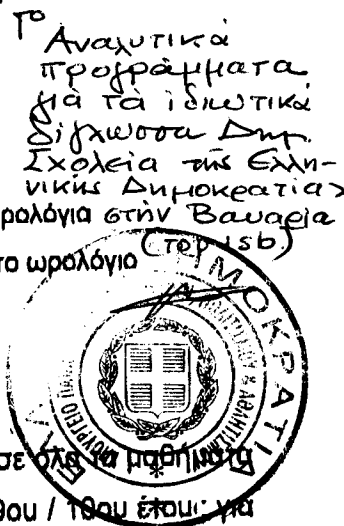 Το
Αναλυτικά
προγράμματα
γιά τα ἰδιωτικά
δίγλωσσα Δημ.
Σχολεία τῆς Ελλη-
νικής Δημοκρατίας
ρολόγια στήν Βαυαρία
(τοp isb)
το ωρολόγιο
ΔΗΜΟΚΡΑΤΙΑ
σε όλα τα μαθήματα
9ου / 10ου έτους για